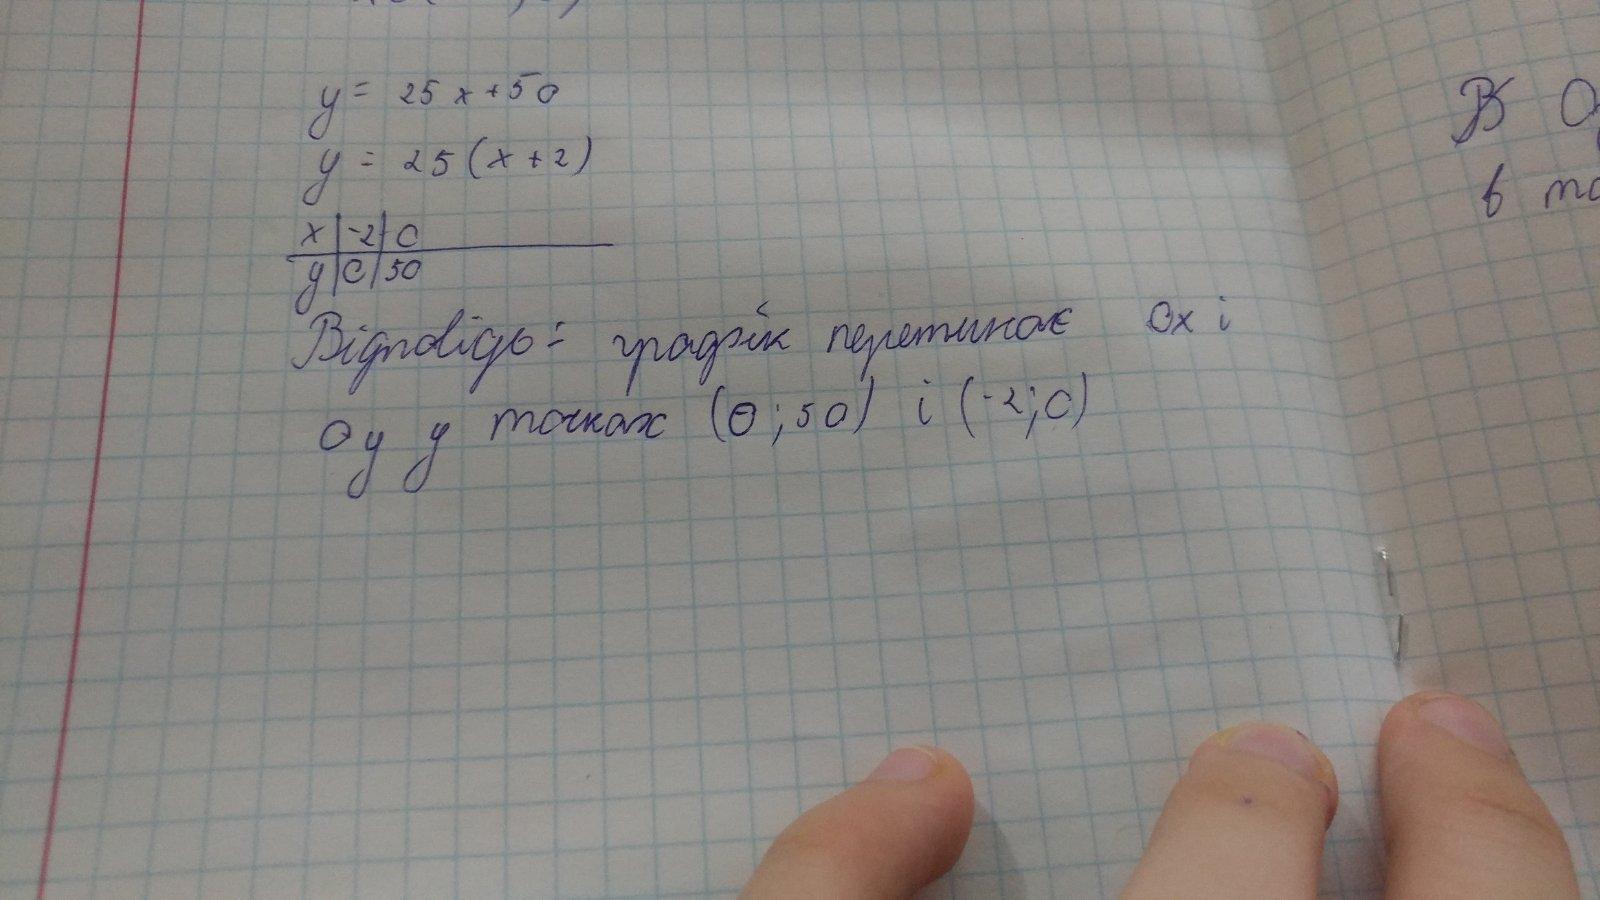 y = 25 x + 50
y = 25 (x + 2)
x | -2 | 0
y | 0 | 50
Відповідь: графік перетинає Ox і
Oy у точках (0 ; 50) і (-2 ; 0)
В
в